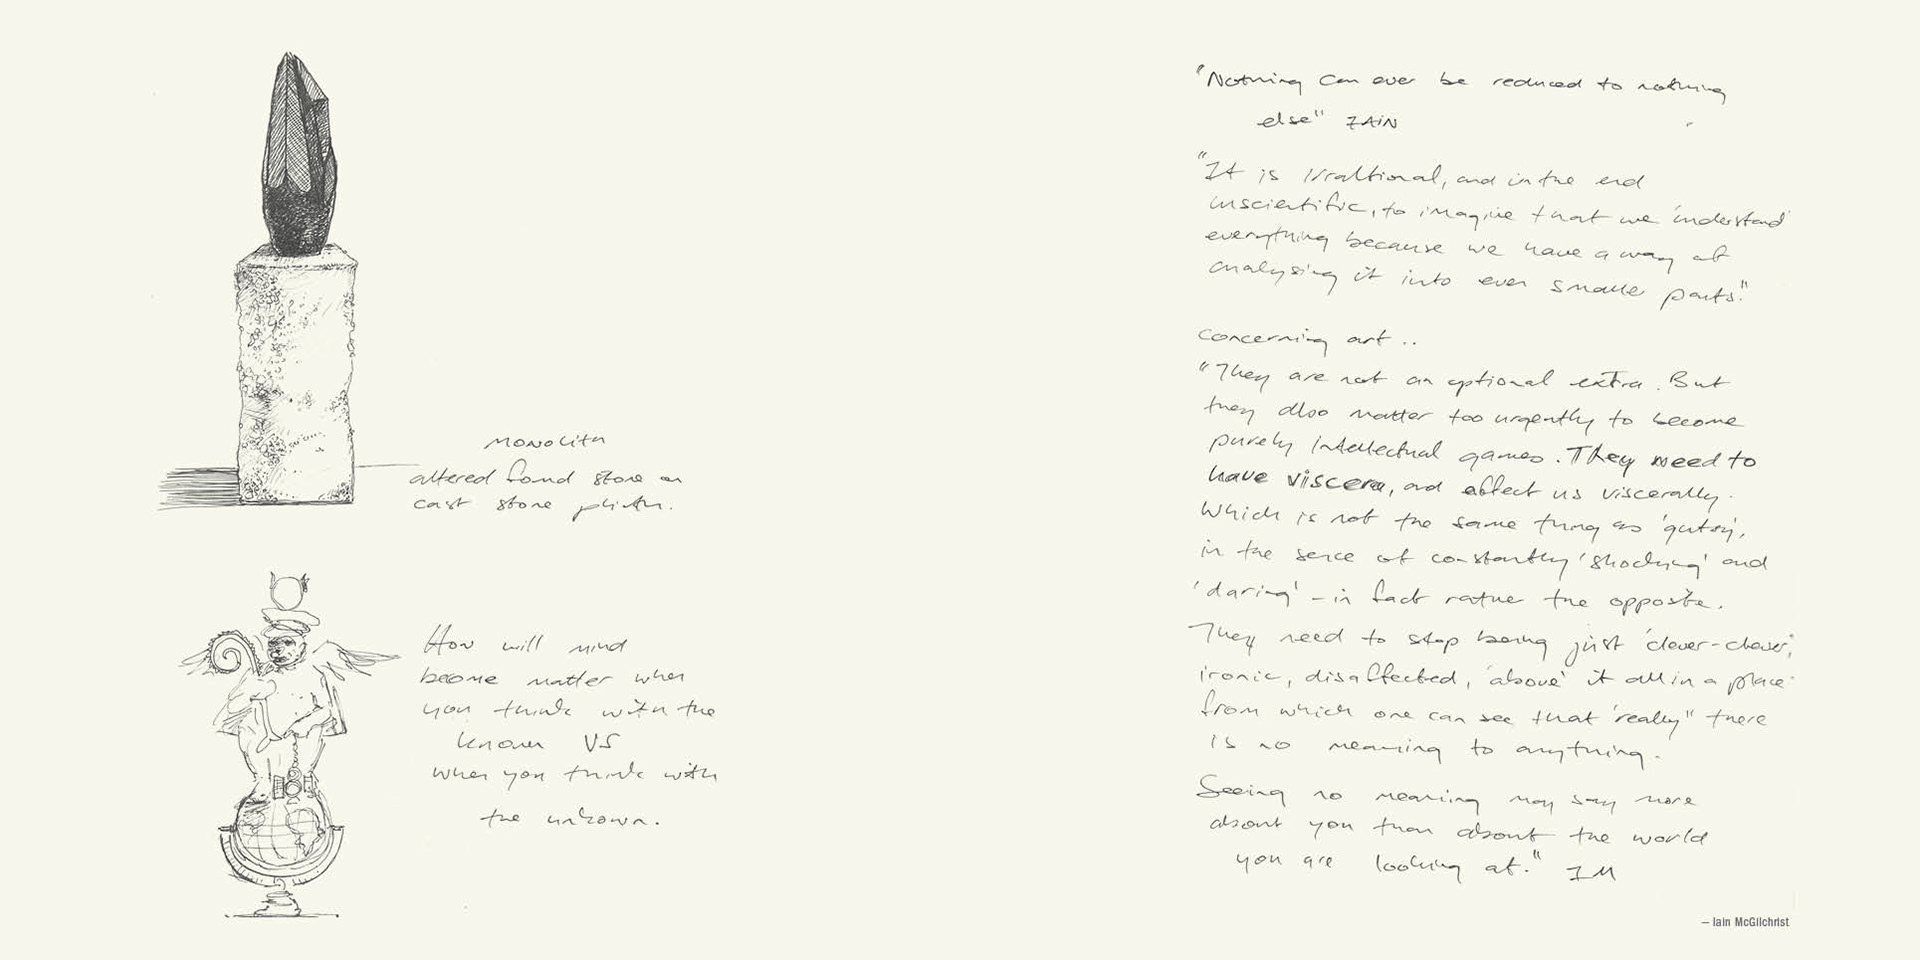 MONOLITH
altered found stone on
cast stone plinth.
How will mind
become matter when
you think with the
known VS
when you think with
the unkown.
"Nothing can ever be reduced to nothing
else" IAIN
"It is irraltional, and in the end
unscientific, to imagine that we 'understand'
everything because we have a way of
analysing it into ever smaller parts."
concerning art ..
"They are not an optional extra. But
they also matter too urgently to become
purely intellectual games. They need to
have viscera, and affect us viscerally.
Which is not the same thing as 'gutsy',
in the sence of constantly 'shocking' and
'daring' – in fact rather the opposite.
They need to stop being just 'clever-clever',
ironic, disaffected, 'above' it all in a place
from which one can see that 'really" there
is no meaning to anything.
Seeing no meaning may say more
about you than about the world
you are looking at." IM
– Iain McGilchrist